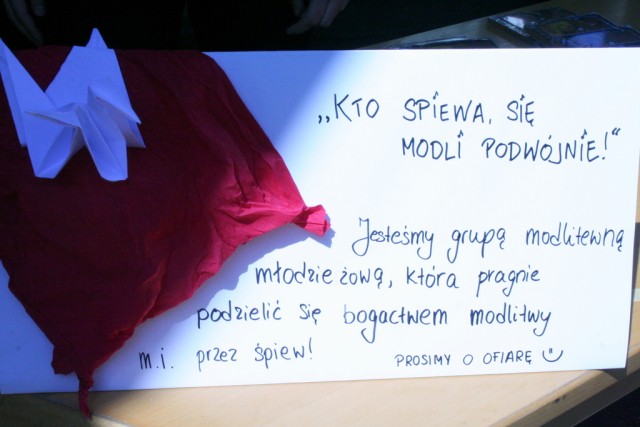 „KTO SPIEWA, SIĘ
MODLI PODWÓJNIE!“
Jesteśmy grupą modlitewną
młodzieżową, która pragnie
podzielić się bogactwem modlitwy
m.i. przez śpiew!
PROSIMY O OFIARĘ